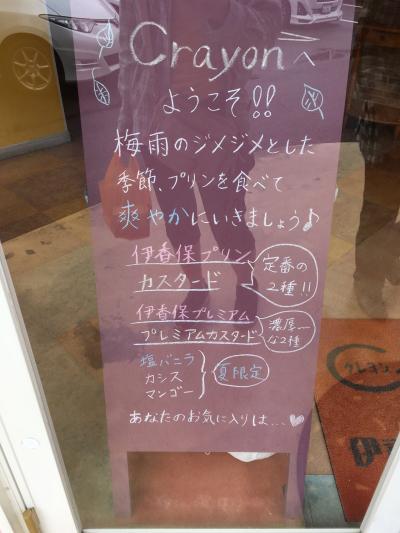 Crayonへ
ようこそ!!
梅雨のジメジメとした
季節、プリンを食べて
爽やかにいきましょう♪
伊香保プリン
カスタード
定番の
2種!!
伊香保プレミアム
プレミアムカスタード
濃厚〜
な2種
塩バニラ
カシス
マンゴー
夏限定
あなたのお気に入りは…♥
クレヨン
伊